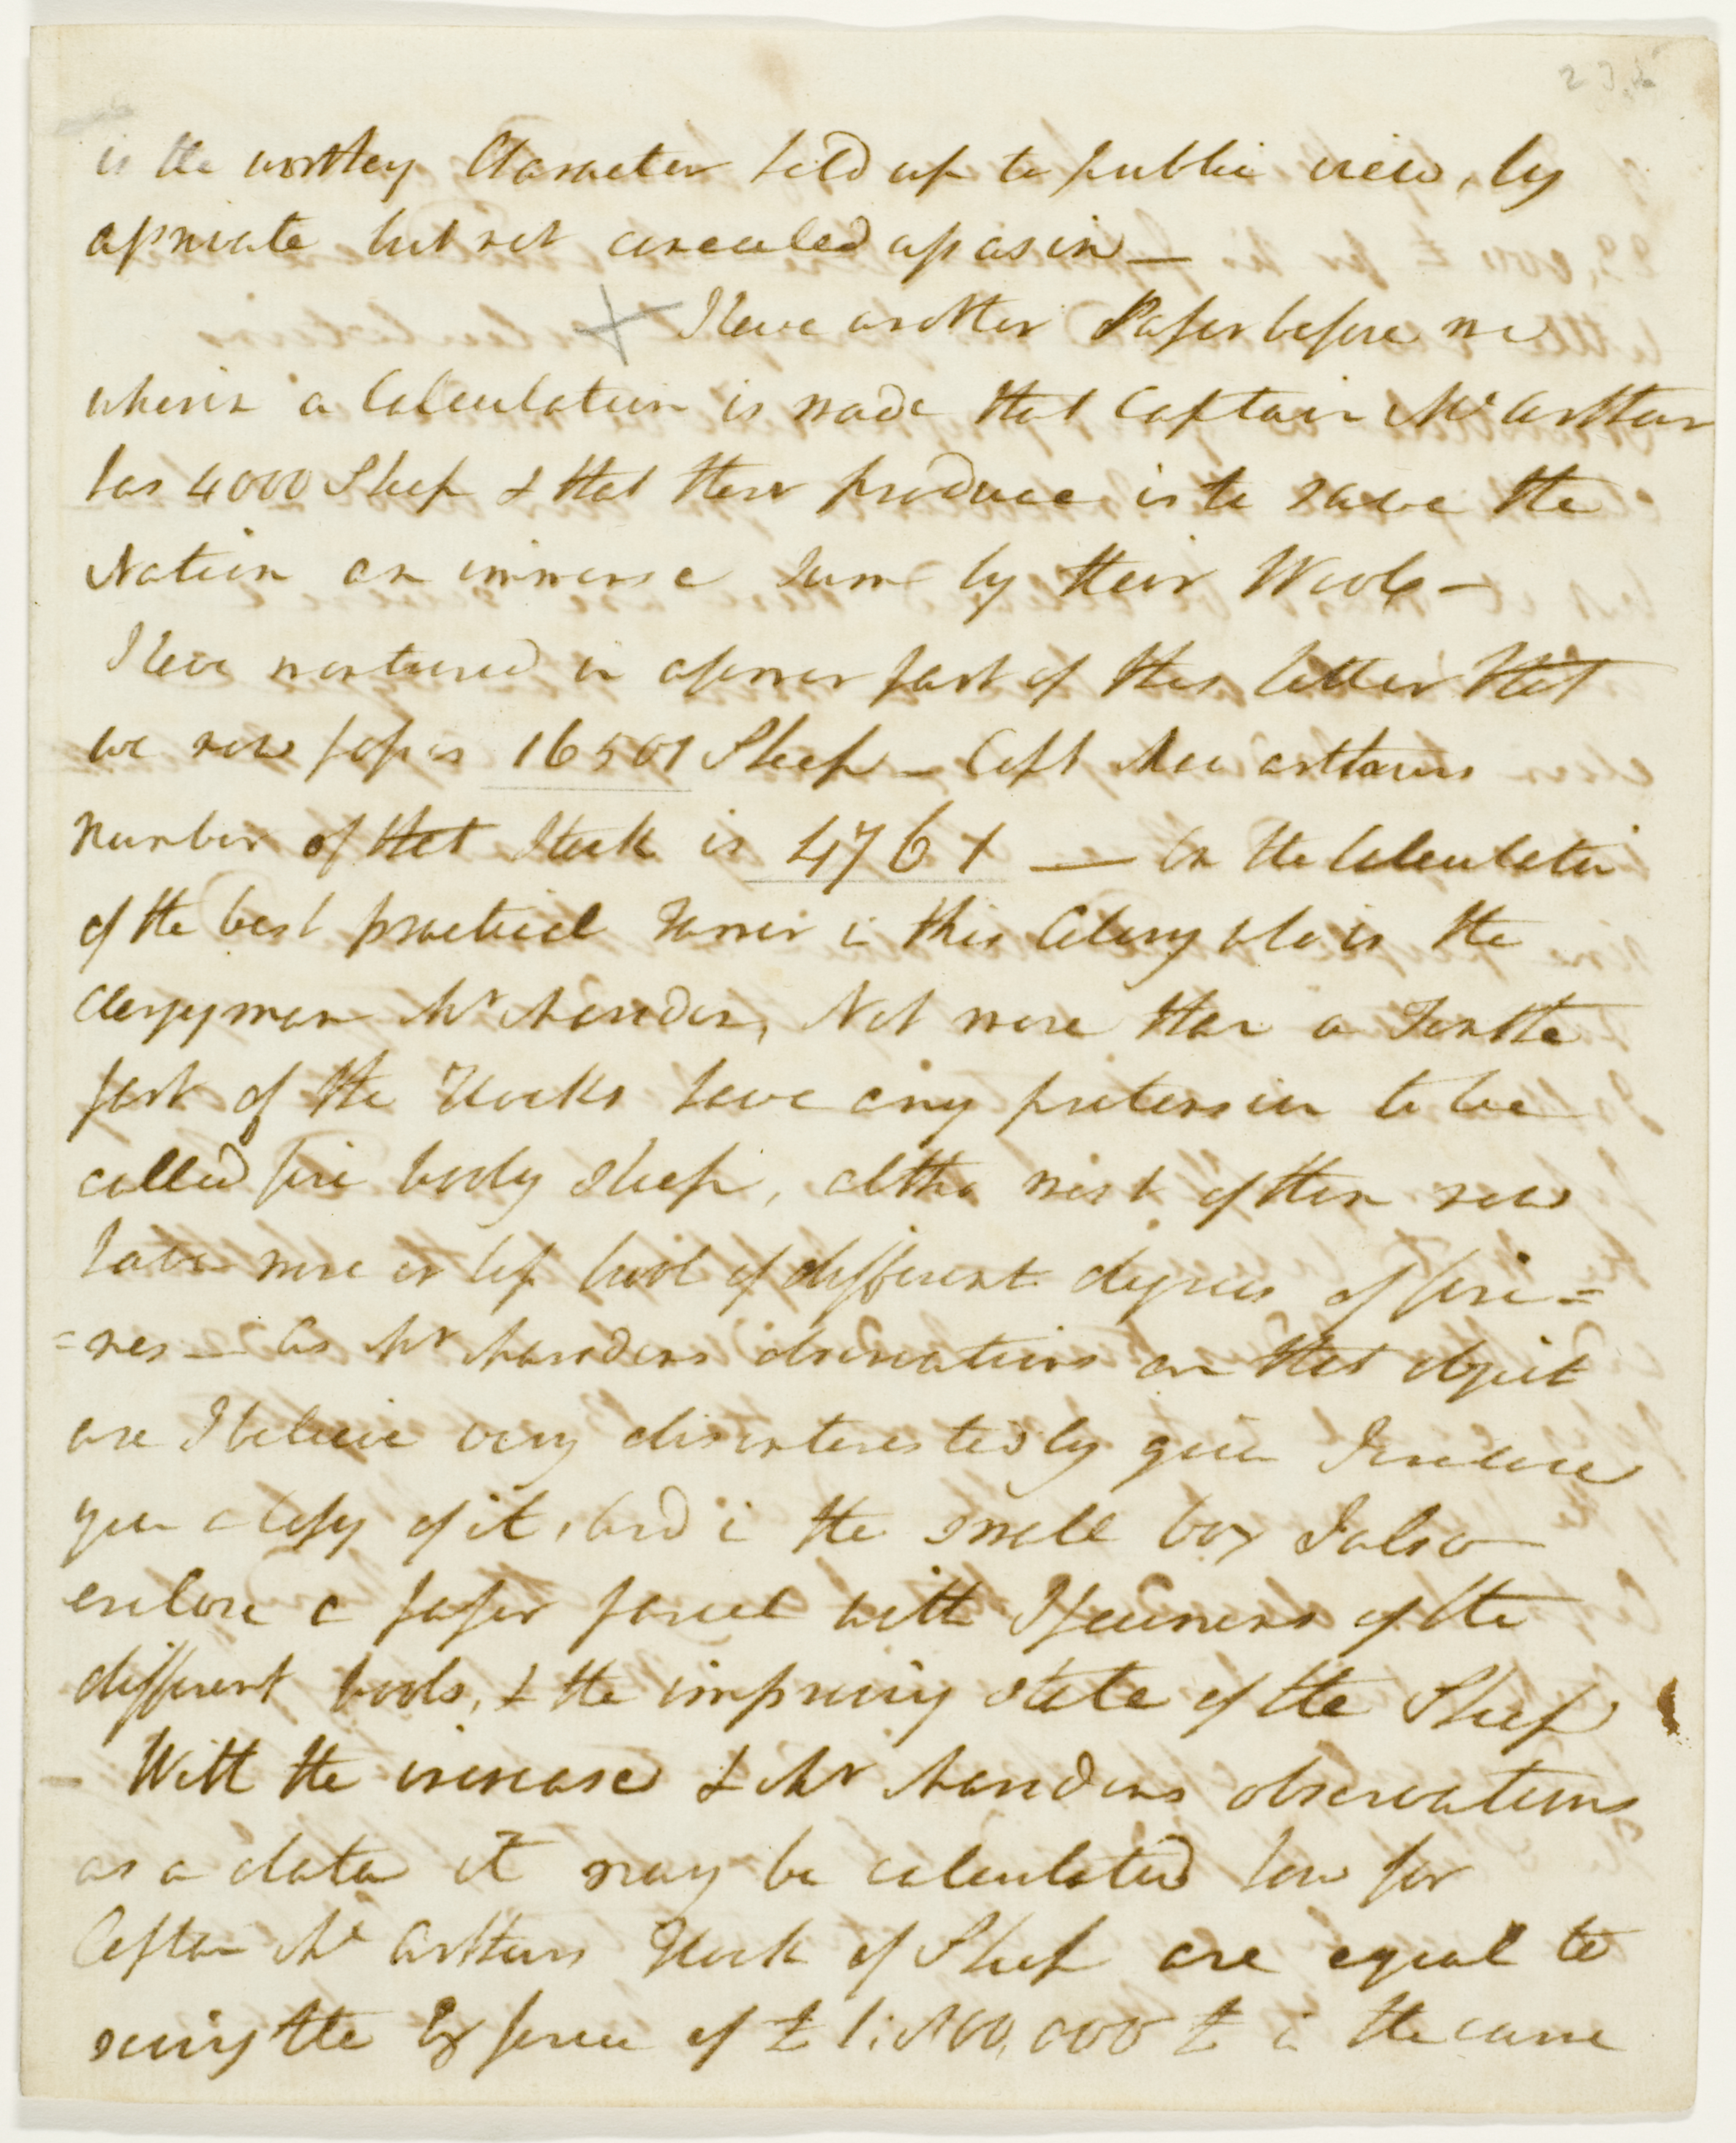 is the worthy Character held up to public view, by
a private but not concealed assasin —
I have another Paper before me
wherein a Calculation is made that Captain McArthur
has 4000 Sheep & that their produce is to save the
Nation an immense Sum by their Wool —
I have mentioned in a former part of this letter that
we now possess 16501 Sheep — Capt MacArthurs
number of that Stock is 4761 — On the Calculation
of the best practical Farmer in this Colony who is the
Clergyman Mr Marsden, Not more than a Tenth
part of the Flocks have any pretension to be
called fine wooly Sheep, altho most of them now
have more or less wool of different degrees of fine=
=nes — As Mr Marsdens observations on that object
are I believe very disinterestedly given I enclose
you a Copy of it, and in the small box I also
enclose a paper parcel with Specimens of the
different wools, & the improving state of the Sheep
— With the increase & Mr Marsdens observations
as a data it may be calculated how far
Captain McArthurs Flock of Sheep are equal to
saving the Expence of £ 1,800,000 £ in the